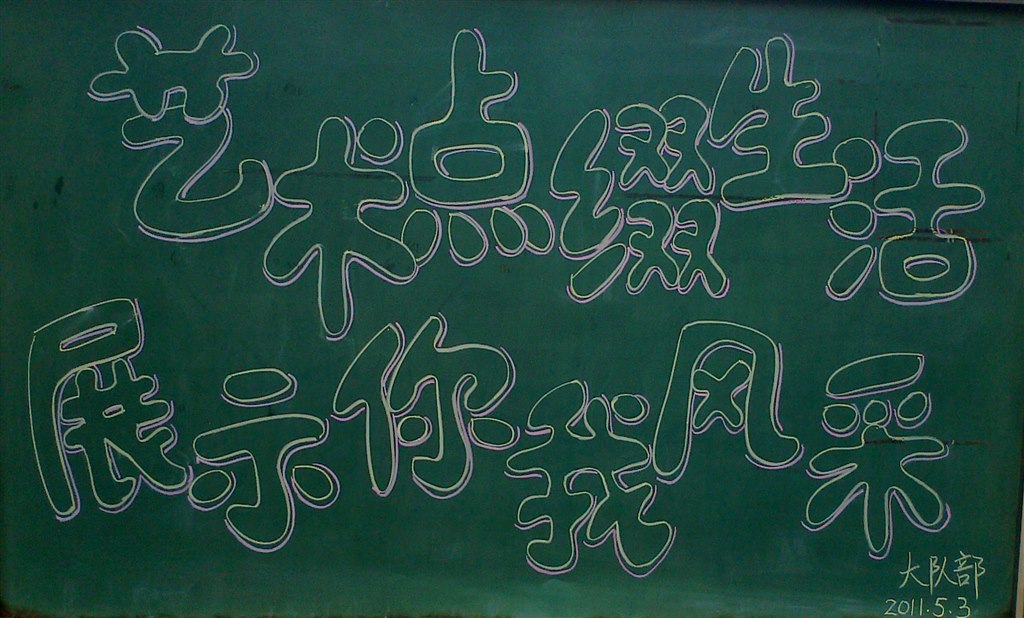 艺术点缀生活
展示你我风采
大队部
2011.5.3